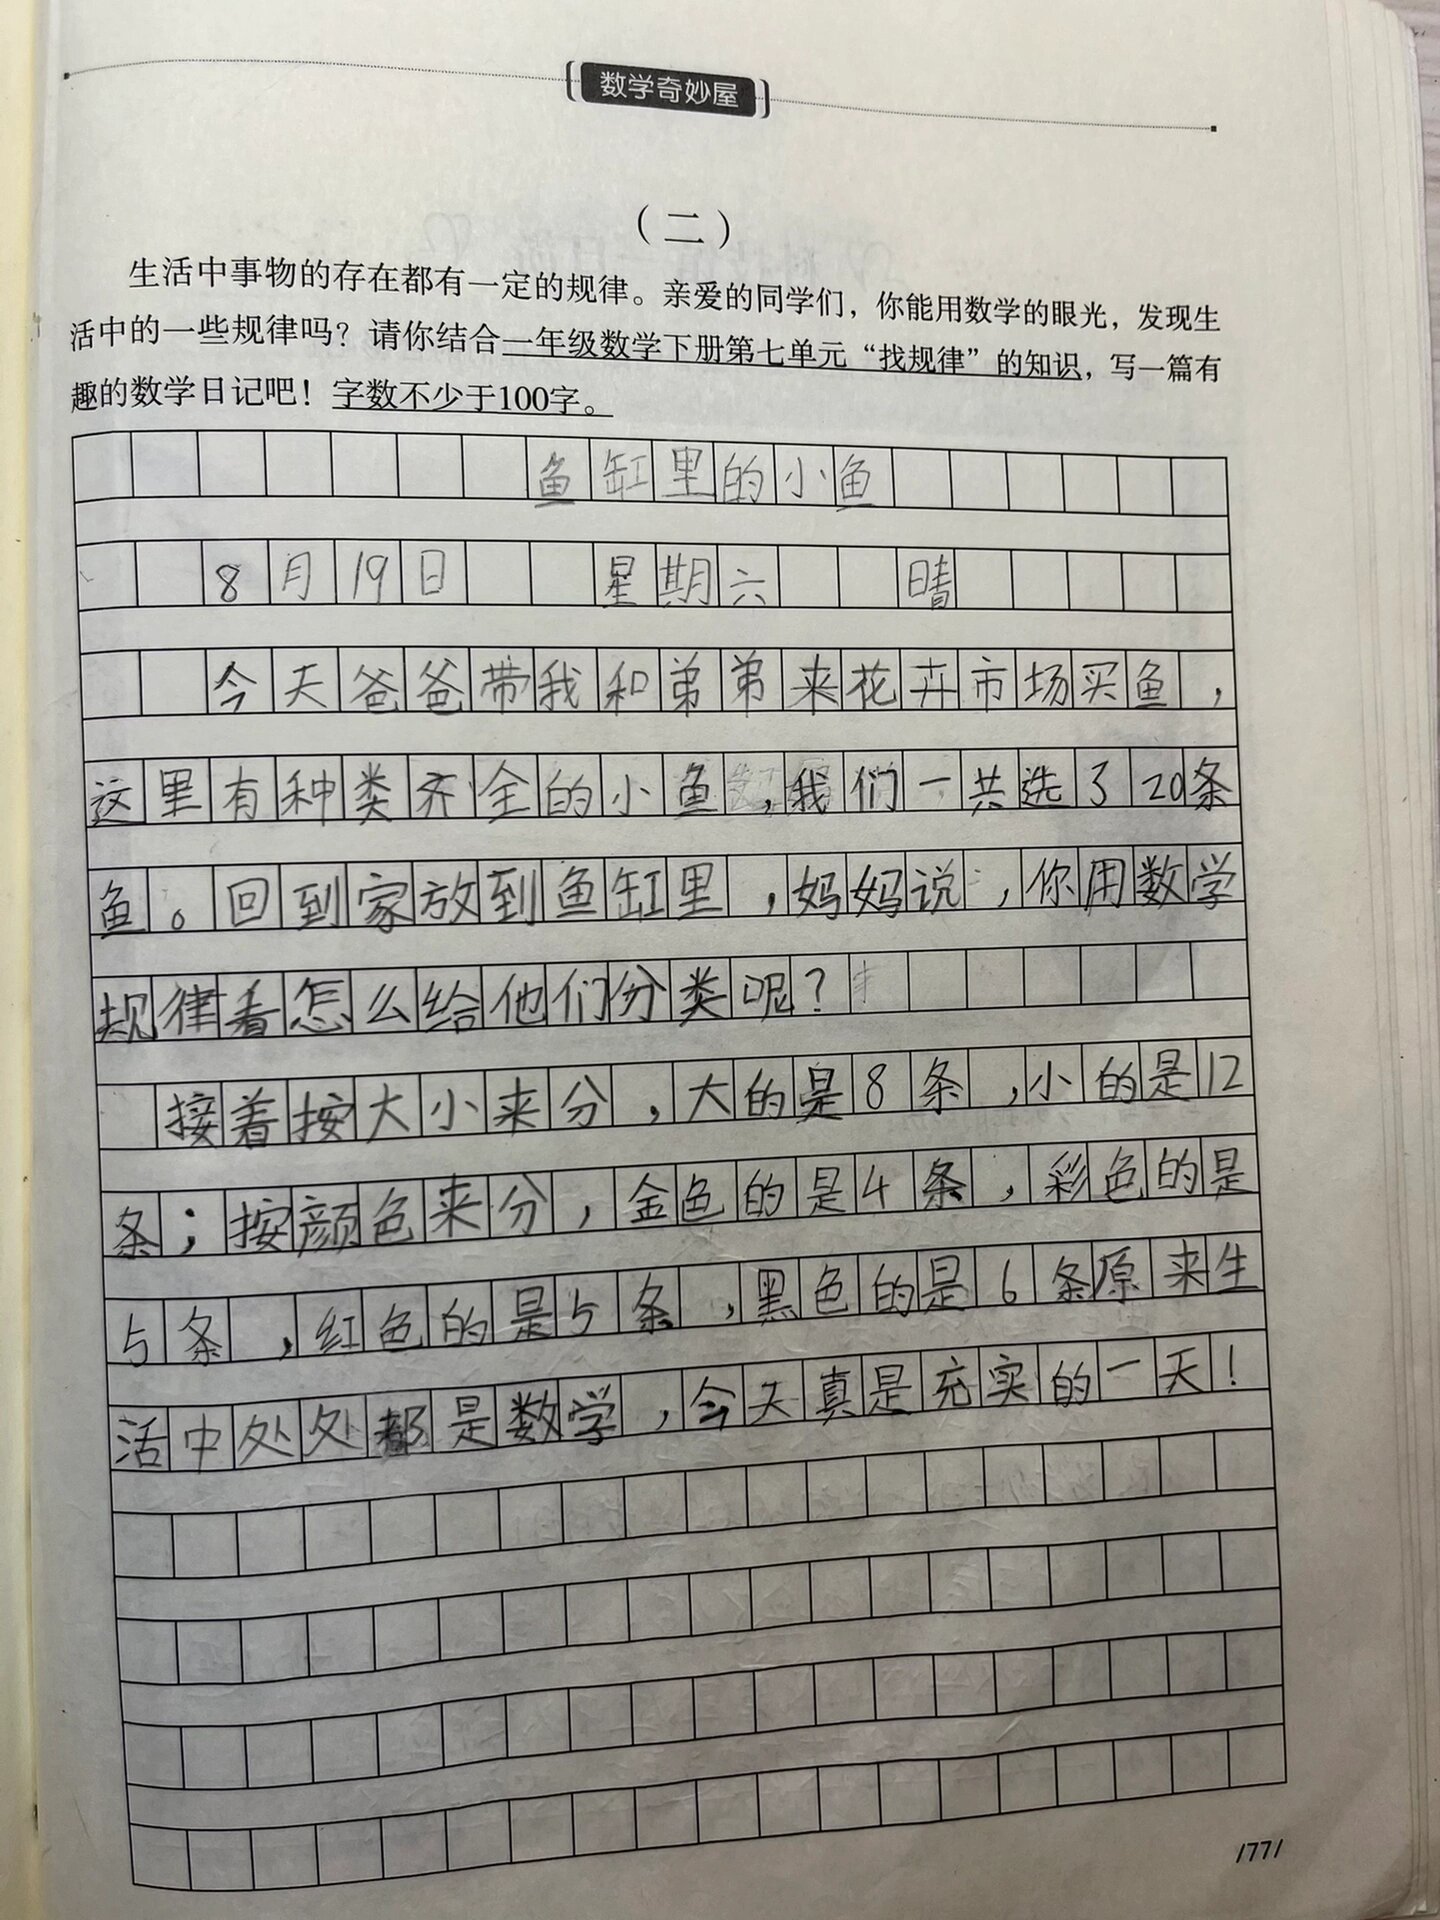 数学奇妙屋
（二）
生活中事物的存在都有一定的规律。亲爱的同学们，你能用数学的眼光，发现生
活中的一些规律吗？请你结合一年级数学下册第七单元“找规律”的知识，写一篇有
趣的数学日记吧！字数不少于100字。
鱼缸里的小鱼
8月19日 星期六 晴
今天爸爸带我和弟弟来花卉市场买鱼，
这里有种类齐全的小鱼，我们一共选了20条
鱼。回到家放到鱼缸里，妈妈说：，你用数学
规律看怎么给他们分类呢？
接着按大小来分，大的是8条，小的是12
条；按颜色来分，金色的是4条，彩色的是
5条，红色的是5条，黑色的是6条原来生
活中处处都是数学，今天真是充实的一天！
/77/